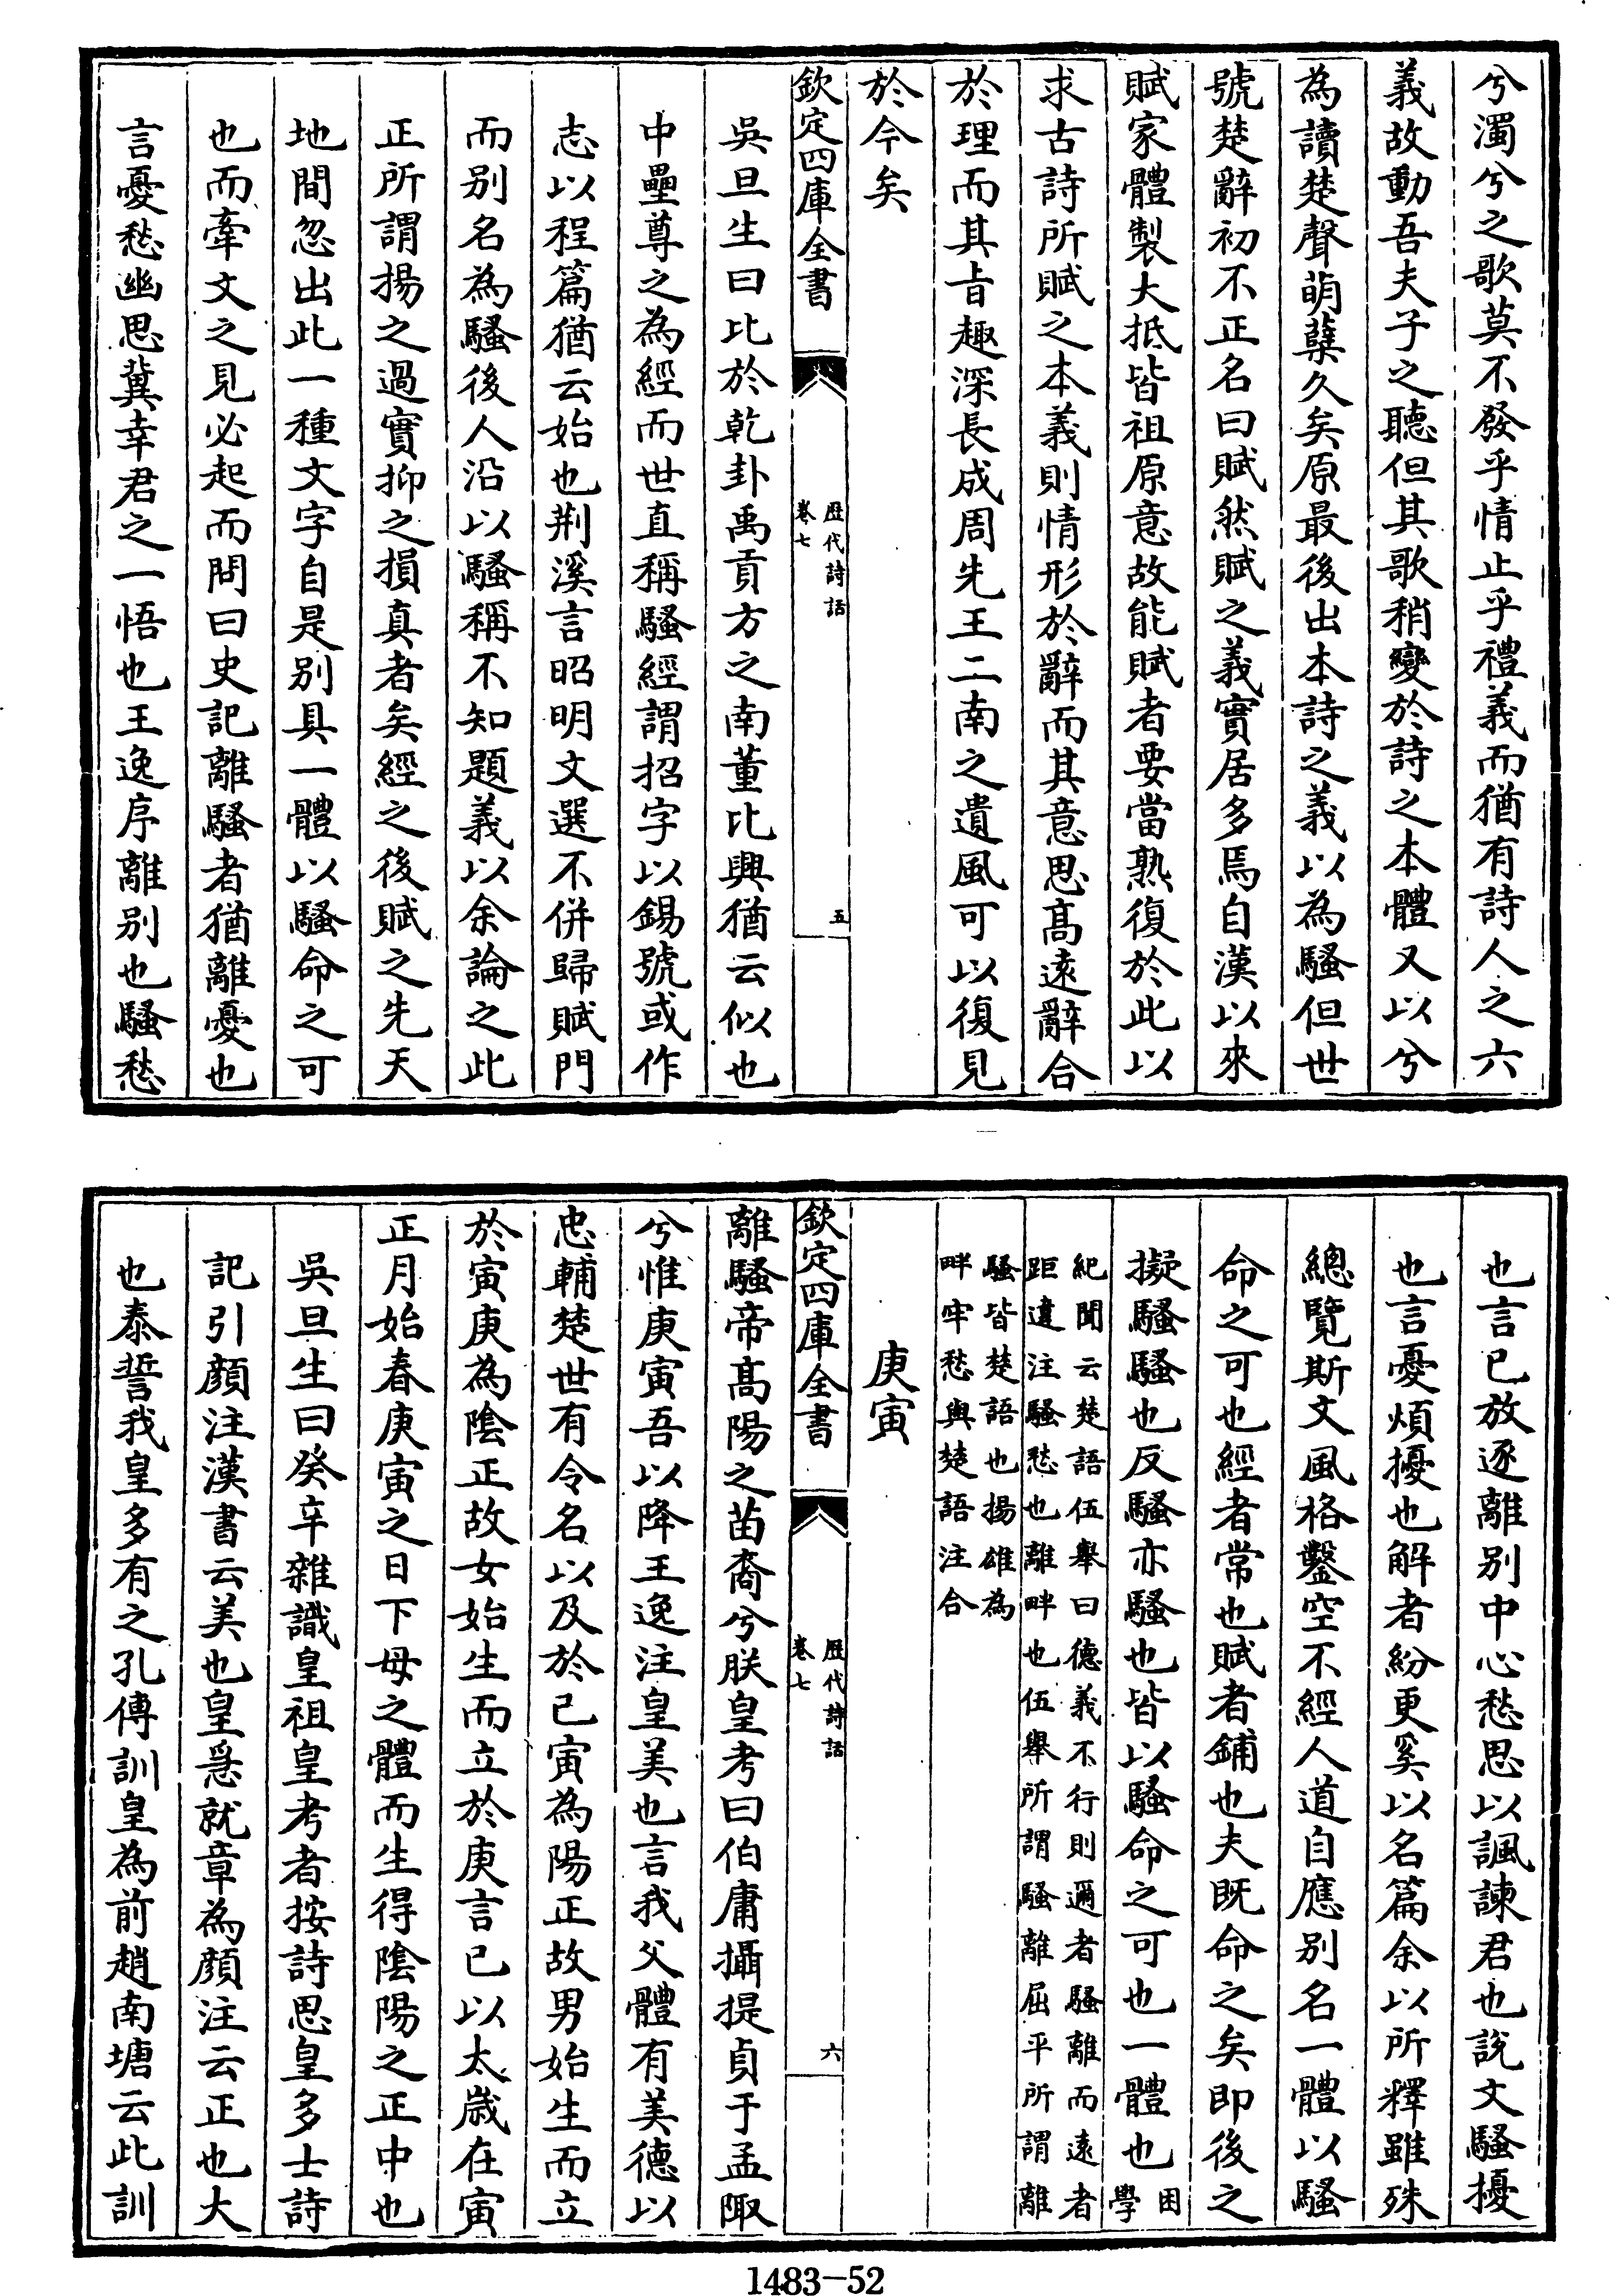 兮濁兮之歌莫不發乎情止乎禮義而猶有詩人之六
義故動吾夫子之聽但其歌稍變於詩之本體又以兮
為讀楚聲萌蘖久矣原最後出本詩之義以為騷但世
號楚辭初不正名曰賦然賦之義實居多焉自漢以來
賦家體製大抵皆祖原意故能賦者要當熟復於此以
求古詩所賦之本義則情形於辭而其意思高遠辭合
於理而其旨趣深長成周先王二南之遺風可以復見
於今矣
欽定四庫全書
歷代詩話
卷七
五
吳旦生曰比於乾卦禹貢方之南董比興猶云似也
中壘尊之為經而世直稱騷經謂招字以錫號或作
志以程篇猶云始也荆溪言昭明文選不併歸賦門
而别名為騷後人沿以騷稱不知題義以余論之此
正所謂揚之過實抑之損真者矣經之後賦之先天
地間忽出此一種文字自是别具一體以騷命之可
也而牽文之見必起而問曰史記離騷者猶離憂也
言憂愁幽思冀幸君之一悟也王逸序離别也騷愁
也言已放逐離别中心愁思以諷諫君也說文騷擾
也言憂煩擾也解者紛更奚以名篇余以所釋雖殊
總覽斯文風格鑿空不經人道自應别名一體以騷
命之可也經者常也賦者鋪也夫既命之矣即後之
擬騷騷也反騷亦騷也皆以騷命之可也一體也困
學
紀聞云楚語伍舉曰德義不行則邇者騷離而遠者
距違注騷愁也離畔也伍舉所謂騷離屈平所謂離
騷皆楚語也揚雄為
畔牢愁與楚語注合
庚寅
欽定四庫全書
歷代詩話
卷七
六
離騷帝高陽之苗裔兮朕皇考曰伯庸攝提貞于孟陬
兮惟庚寅吾以降王逸注皇美也言我父體有美德以
忠輔楚世有令名以及於已寅為陽正故男始生而立
於寅庚為陰正故女始生而立於庚言已以太歲在寅
正月始春庚寅之日下母之體而生得陰陽之正中也
吳旦生曰癸辛雜識皇祖皇考者按詩思皇多士詩
記引顔注漢書云美也皇㤅就章為顔注云正也大
也泰誓我皇多有之孔傳訓皇為前趙南塘云此訓
1483-52